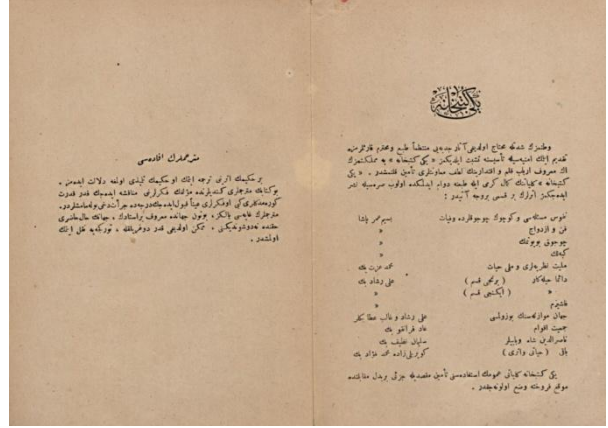 یکی کتبخانه
وطنمزك شدتله محتاج اولدیغی آثار جدیه‌یی منتظماً طبع و محترم قارئلرمزه
تقدیم ایتمك امنیه‌سیله تأسیسنه تشبث ایدیکمز « یکی کتبخانه » یه مملکتمزك
اك معروف ارباب قلم و اقتدارینك لطف معاونتلری تأمین قلنمشدر . « یکی
کتبخانه » کلیاتنك کمال گرمی ایله طبعنه دوام ایدلمکده اولوب سرمسیله نشر
ایده‌جکمز اثرلرك بر قسمی بروجه آتیدر :
نفوس مسئله‌سی و کوچوك چوجوقلرده وفیات بسیم عمر پاشا
فن و ازدواج »
چوجوق بویوتمك »
کبه‌لك »
ملیت نظریه‌لری و ملی حیات محمد عزت بك
دائما حیله‌کار ( برنجی قسم ) علی رشاد بك
» ( ایکنجی قسم ) »
فاشیزم »
جهان موازنه‌سنك بوزولمسی علی رشاد و غالب عطا بکلر
جمعیت اقوام
ناصرالدین شاه و بابیلر سلیمان نظیف بك
باقی ( حیاتی و اثری ) کوپریلی‌زاده محمد فؤاد بك
یکی کتبخانه کلیاتی عمومك استفاده‌سنی تأمین مقصدیله جزئی بر بدل مقابلنده
موقع فروخته وضع اولونه‌جقدر .
مترجملرك افاده‌سی
بر حکیمك اثرینی ترجمه ایتمك او حکیمك تلمیذی اولمغه دلالت ایده‌من .
بو کتابك مترجملری کندیلرنده مؤلفك فکرلرینی مناقشه ایده‌جك قدر قدرت
کورمه‌دکلری کبی اوفکرلری عیناً قبول ایده‌جك درجه‌ده جرأت دخی بوله‌مامشلردر.
مترجملرك غایه‌سی یالکز ، بوتون جهانده معروف بر استادك ، جهانك حال حاضری
حقنده نه‌دوشوندیکنی ، ممکن اولدیغی قدر دوغریلقله ، تورکجه‌یه نقل ایتمك
اولمشدر .